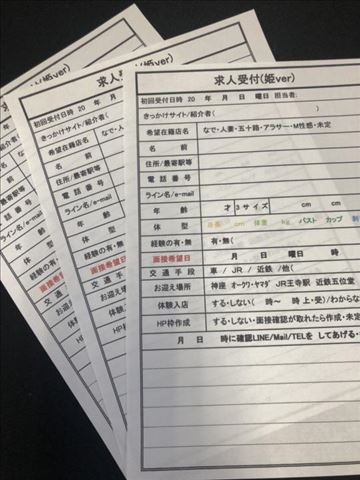 求人受付(姫ver)
初回受付日時 20 年 月 日 曜日 担当者:
きっかけサイト/紹介者( )
希望在籍店名 なで・人妻・五十路・アラサー・M性感・未定
名 前
住所/最寄駅等
電 話 番 号
ライン名/e-mail
年 齢 才 3サイズ cm cm
体 型 身長 cm 体重 kg バスト カップ 制
経験の有・無 有・無(
面接希望日 月 日 曜日 時
交 通 手 段 車 / JR / 近鉄 /他(
お迎え場所 神座 オークワ・ヤマダ JR王寺駅 近鉄五位堂
体験入店 する・しない( 時〜 時 上・受)/わからな
HP枠作成 する・しない・面接確認が取れたら作成・未定
月 日 時に確認LINE/Mail/TELを してあげる・
求人受付(
初回受付日時 20 年
きっかけサイト/紹介者(
希望在籍店名 なで・人
名 前
住所/最寄駅等
電 話 番 号
ライン名/e-mail
年 齢
体 型
経験の有・無
面接希望日
交 通 手 段
お迎え場所
体験入店
HP枠作成
月 日
(姫ver)